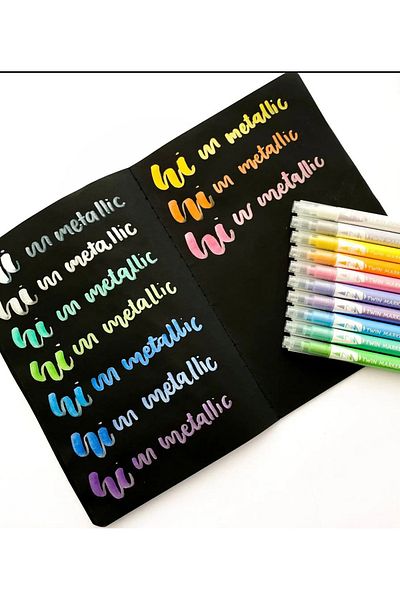 hi in metallic
hi in metallic
hi in metallic
hi in metallic
hi in metallic
hi in metallic
hi in metallic
hi in metallic
hi in metallic
hi in metallic
TWIN MARKE
TWIN MARKE
TWIN MARKE
TWIN MARKE
TWIN MARKE
TWIN MARKE